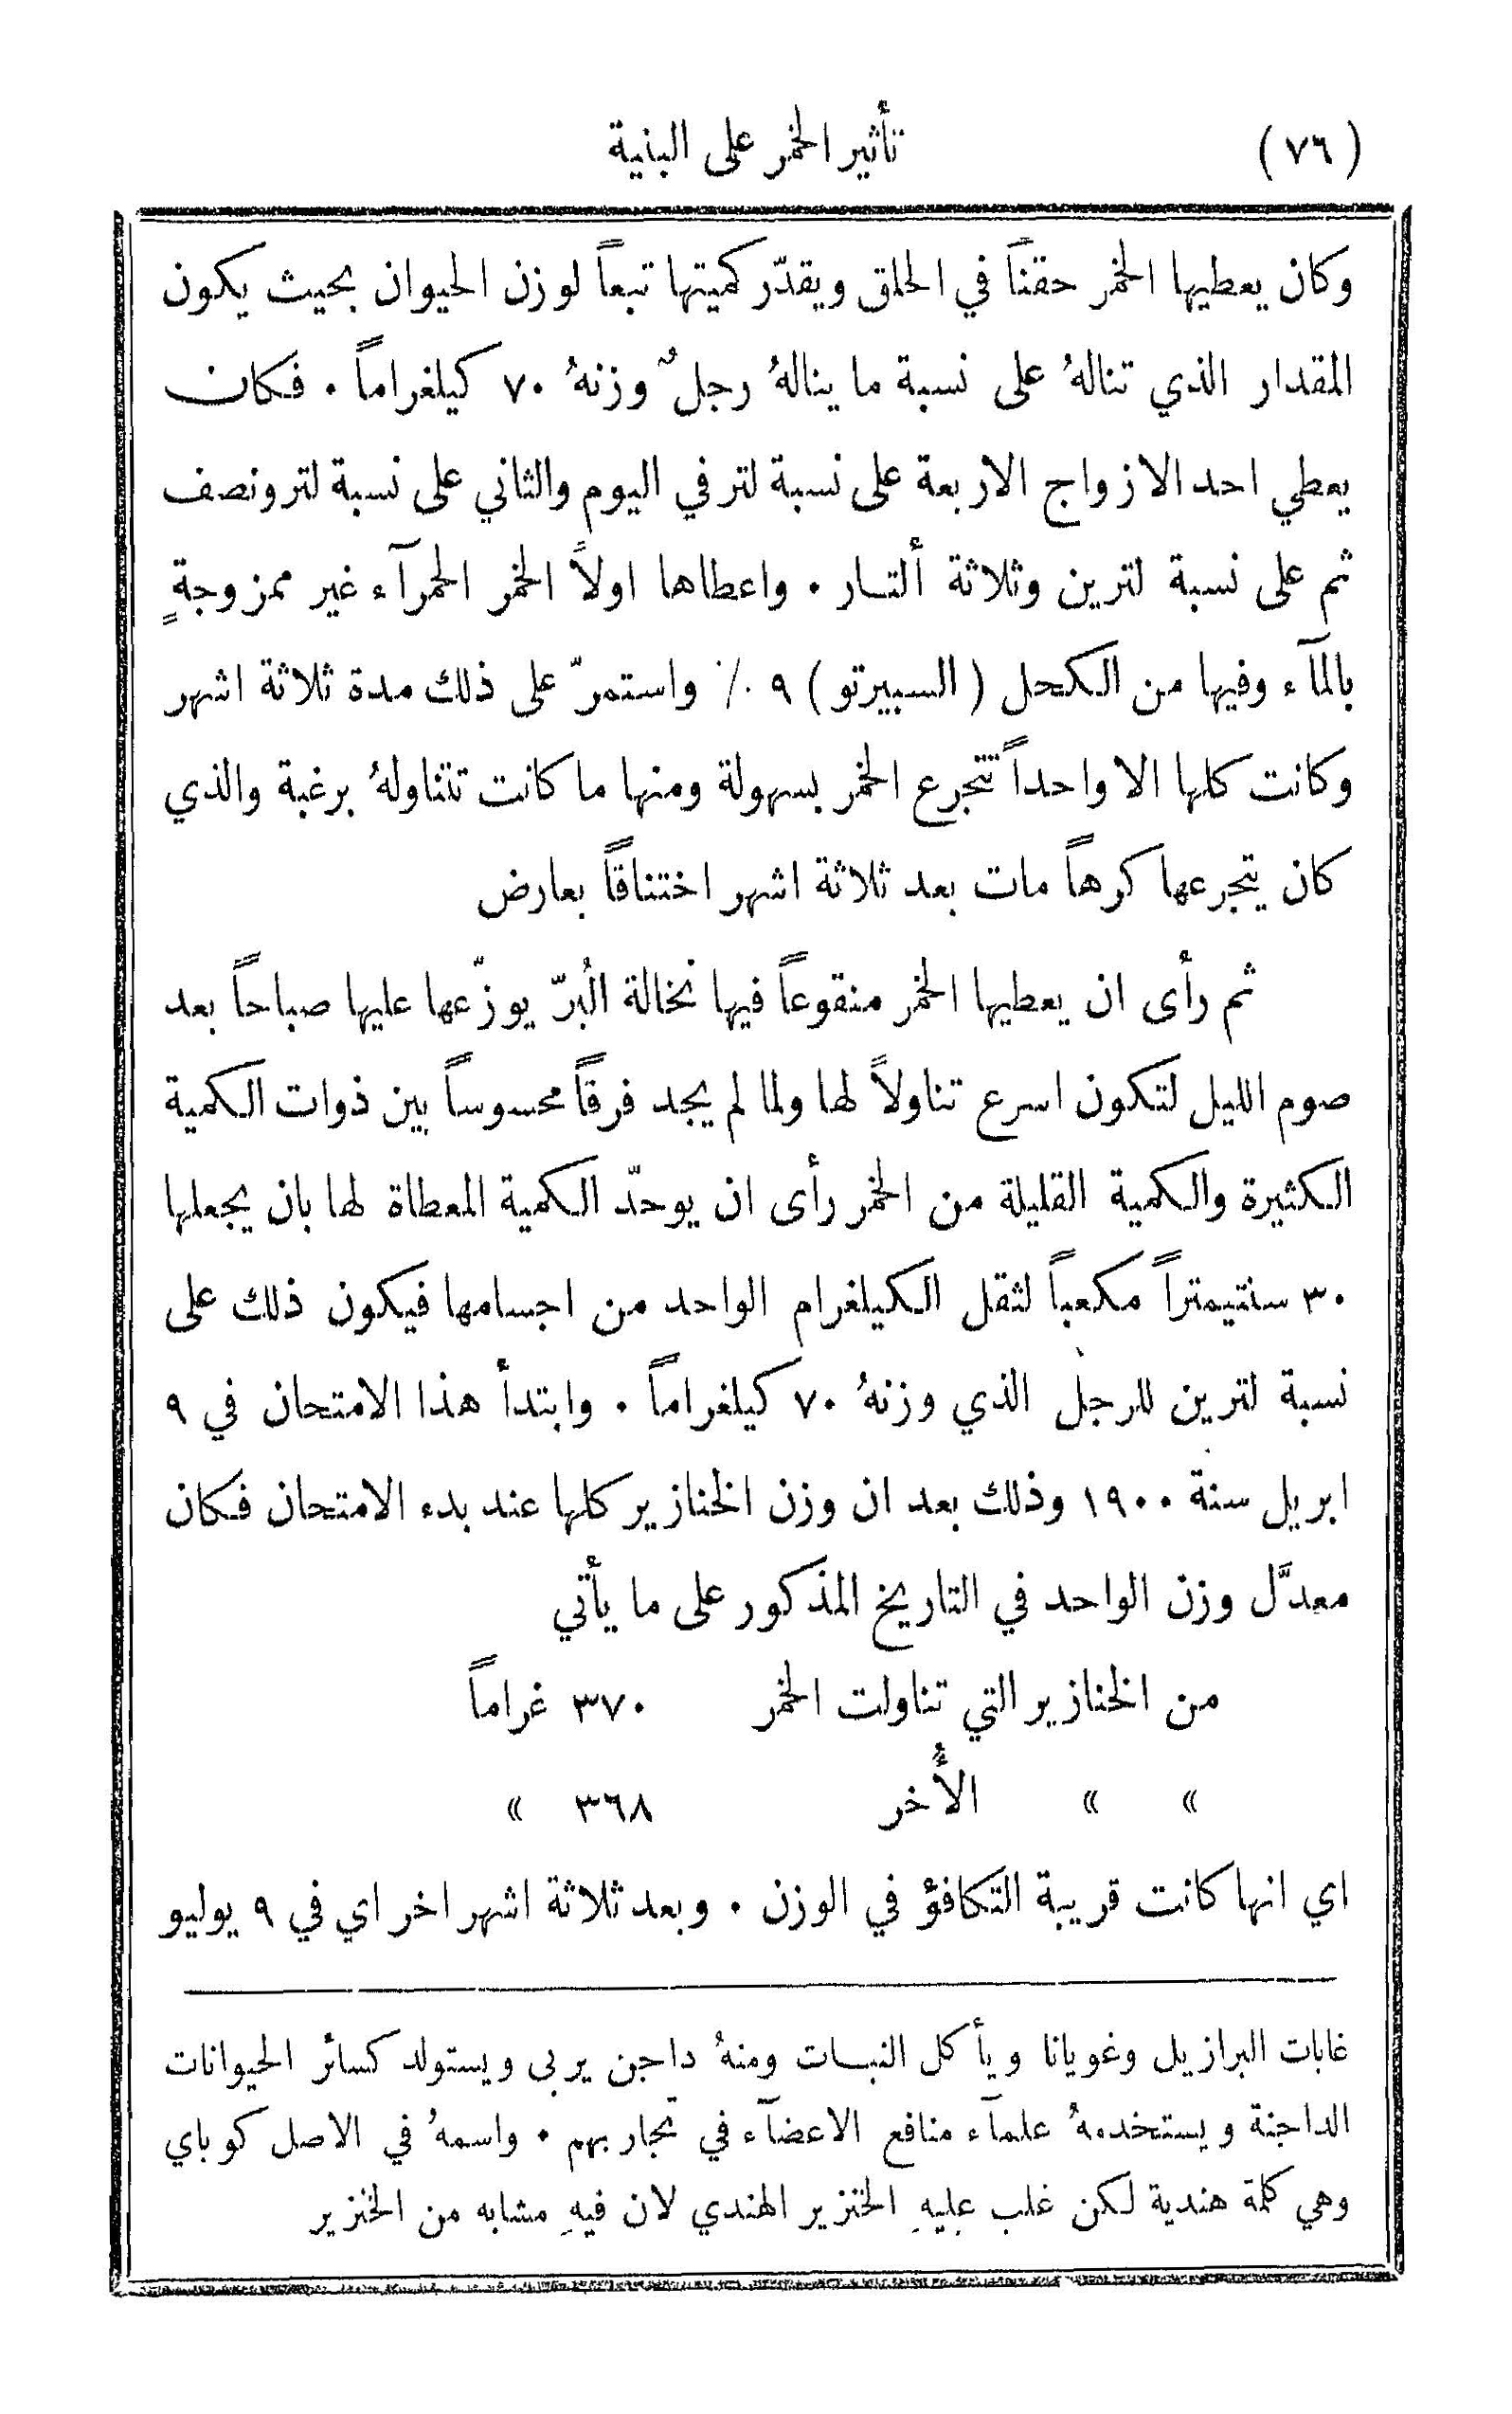 (٧٦) تأثير الخمر على البنية
وكان يعطيها الخمر حقناً في الحلق ويقدّر كميتها تبعاً لوزن الحيوان بحيث يكون
المقدار الذي تنالهُ على نسبة ما ينالهُ رجلٌ وزنهُ ٧٠ كيلغراماً ٠ فكان
يعطي احد الازواج الاربعة على نسبة لتر في اليوم والثاني على نسبة لتر ونصف
ثم على نسبة لترين وثلاثة ألتار ٠ واعطاها اولاً الخمر الحمرآء غير ممزوجةٍ
بالمآء وفيها من الكحل (السبيرتو) ٩ ٪ واستمرّ على ذلك مدة ثلاثة اشهر
وكانت كلها الا واحداً تتجرع الخمر بسهولة ومنها ما كانت تتناولهُ برغبة والذي
كان يتجرعها كرهاً مات بعد ثلاثة اشهر اختناقاً بعارض
ثم رأى ان يعطيها الخمر منقوعاً فيها نخالة البُرّ يوزّعها عليها صباحاً بعد
صوم الليل لتكون اسرع تناولاً لها ولما لم يجد فرقاً محسوساً بين ذوات الكمية
الكثيرة والكمية القليلة من الخمر رأى ان يوحّد الكمية المعطاة لها بان يجعلها
٣٠ سنتيمتراً مكعباً لثقل الكيلغرام الواحد من اجسامها فيكون ذلك على
نسبة لترين للرجل الذي وزنهُ ٧٠ كيلغراماً ٠ وابتدأ هذا الامتحان في ٩
ابريل سنة ١٩٠٠ وذلك بعد ان وزن الخنازير كلها عند بدء الامتحان فكان
معدَّل وزن الواحد في التاريخ المذكور على ما يأتي
من الخنازير التي تناولت الخمر ٣٧٠ غراماً
» » الأُخر ٣٦٨ »
اي انها كانت قريبة التكافؤ في الوزن ٠ وبعد ثلاثة اشهر اخر اي في ٩ يوليو
غابات البرازيل وغويانا ويأكل النبات ومنهُ داجن يربى ويستولد كسائر الحيوانات
الداجنة ويستخدمهُ علمآء منافع الاعضآء في تجاربهم ٠ واسمهُ في الاصل كوباي
وهي كلمة هندية لكن غلب عليهِ الخنزير الهندي لان فيهِ مشابه من الخنزير